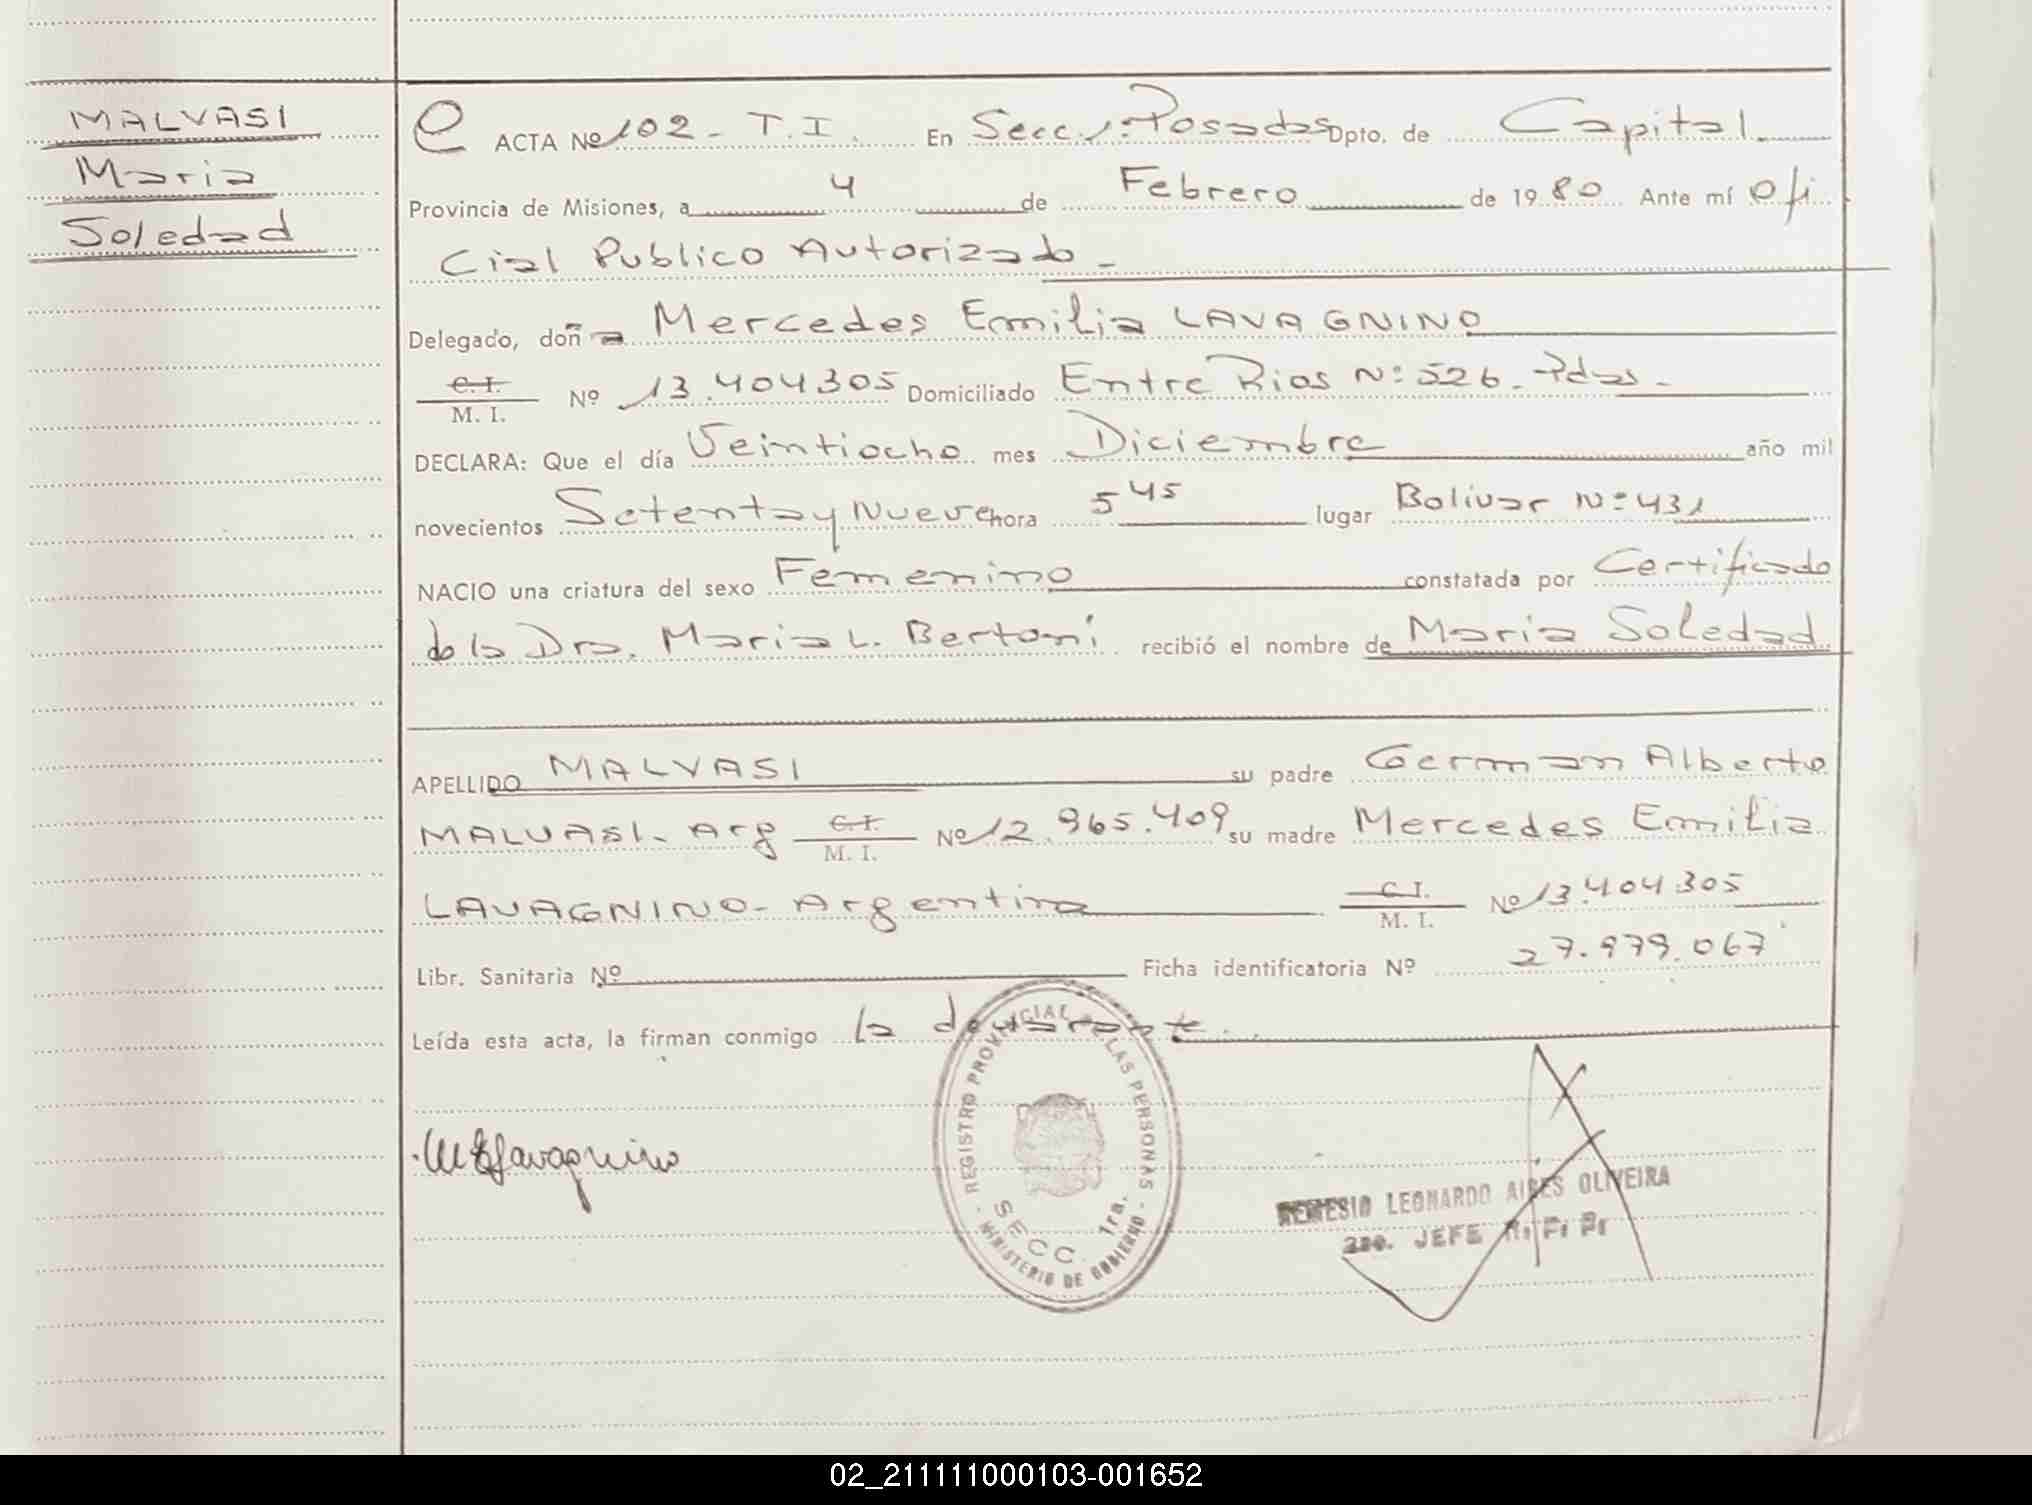 MALVASI
Maria
Soledad
e ACTA Nº 102 - T.I. En Secc. 1º Posadas Dpto. de Capital
Provincia de Misiones, a 4 de Febrero de 1980 Ante mí Ofi
cial Publico Autorizado -
Delegado, doña Mercedes Emilia LAVAGNINO
C.I.
M. I. Nº 13.404305 Domiciliado Entre Rios Nº 526 - Pdas -
DECLARA: Que el día Veintiocho mes Diciembre año mil
novecientos Setenta y Nueve hora 5 45 lugar Bolivar Nº 431
NACIO una criatura del sexo Femenino constatada por Certificado
de la Dra. Maria L. Bertoni recibió el nombre de Maria Soledad
APELLIDO MALVASI su padre German Alberto
MALVASI - Arg C.I.
M. I. Nº 12.965.409 su madre Mercedes Emilia
LAVAGNINO - Argentina C.I.
M. I. Nº 13.404.305
Libr. Sanitaria Nº Ficha identificatoria Nº 27.979.067
Leída esta acta, la firman conmigo la declarante
REGISTRO PROVINCIAL DE LAS PERSONAS
SECC. 1ra.
- MINISTERIO DE GOBIERNO -
MELavagnino
NEMESIO LEONARDO AIRES OLIVEIRA
2do. JEFE R. P. P.
02_211111000103-001652